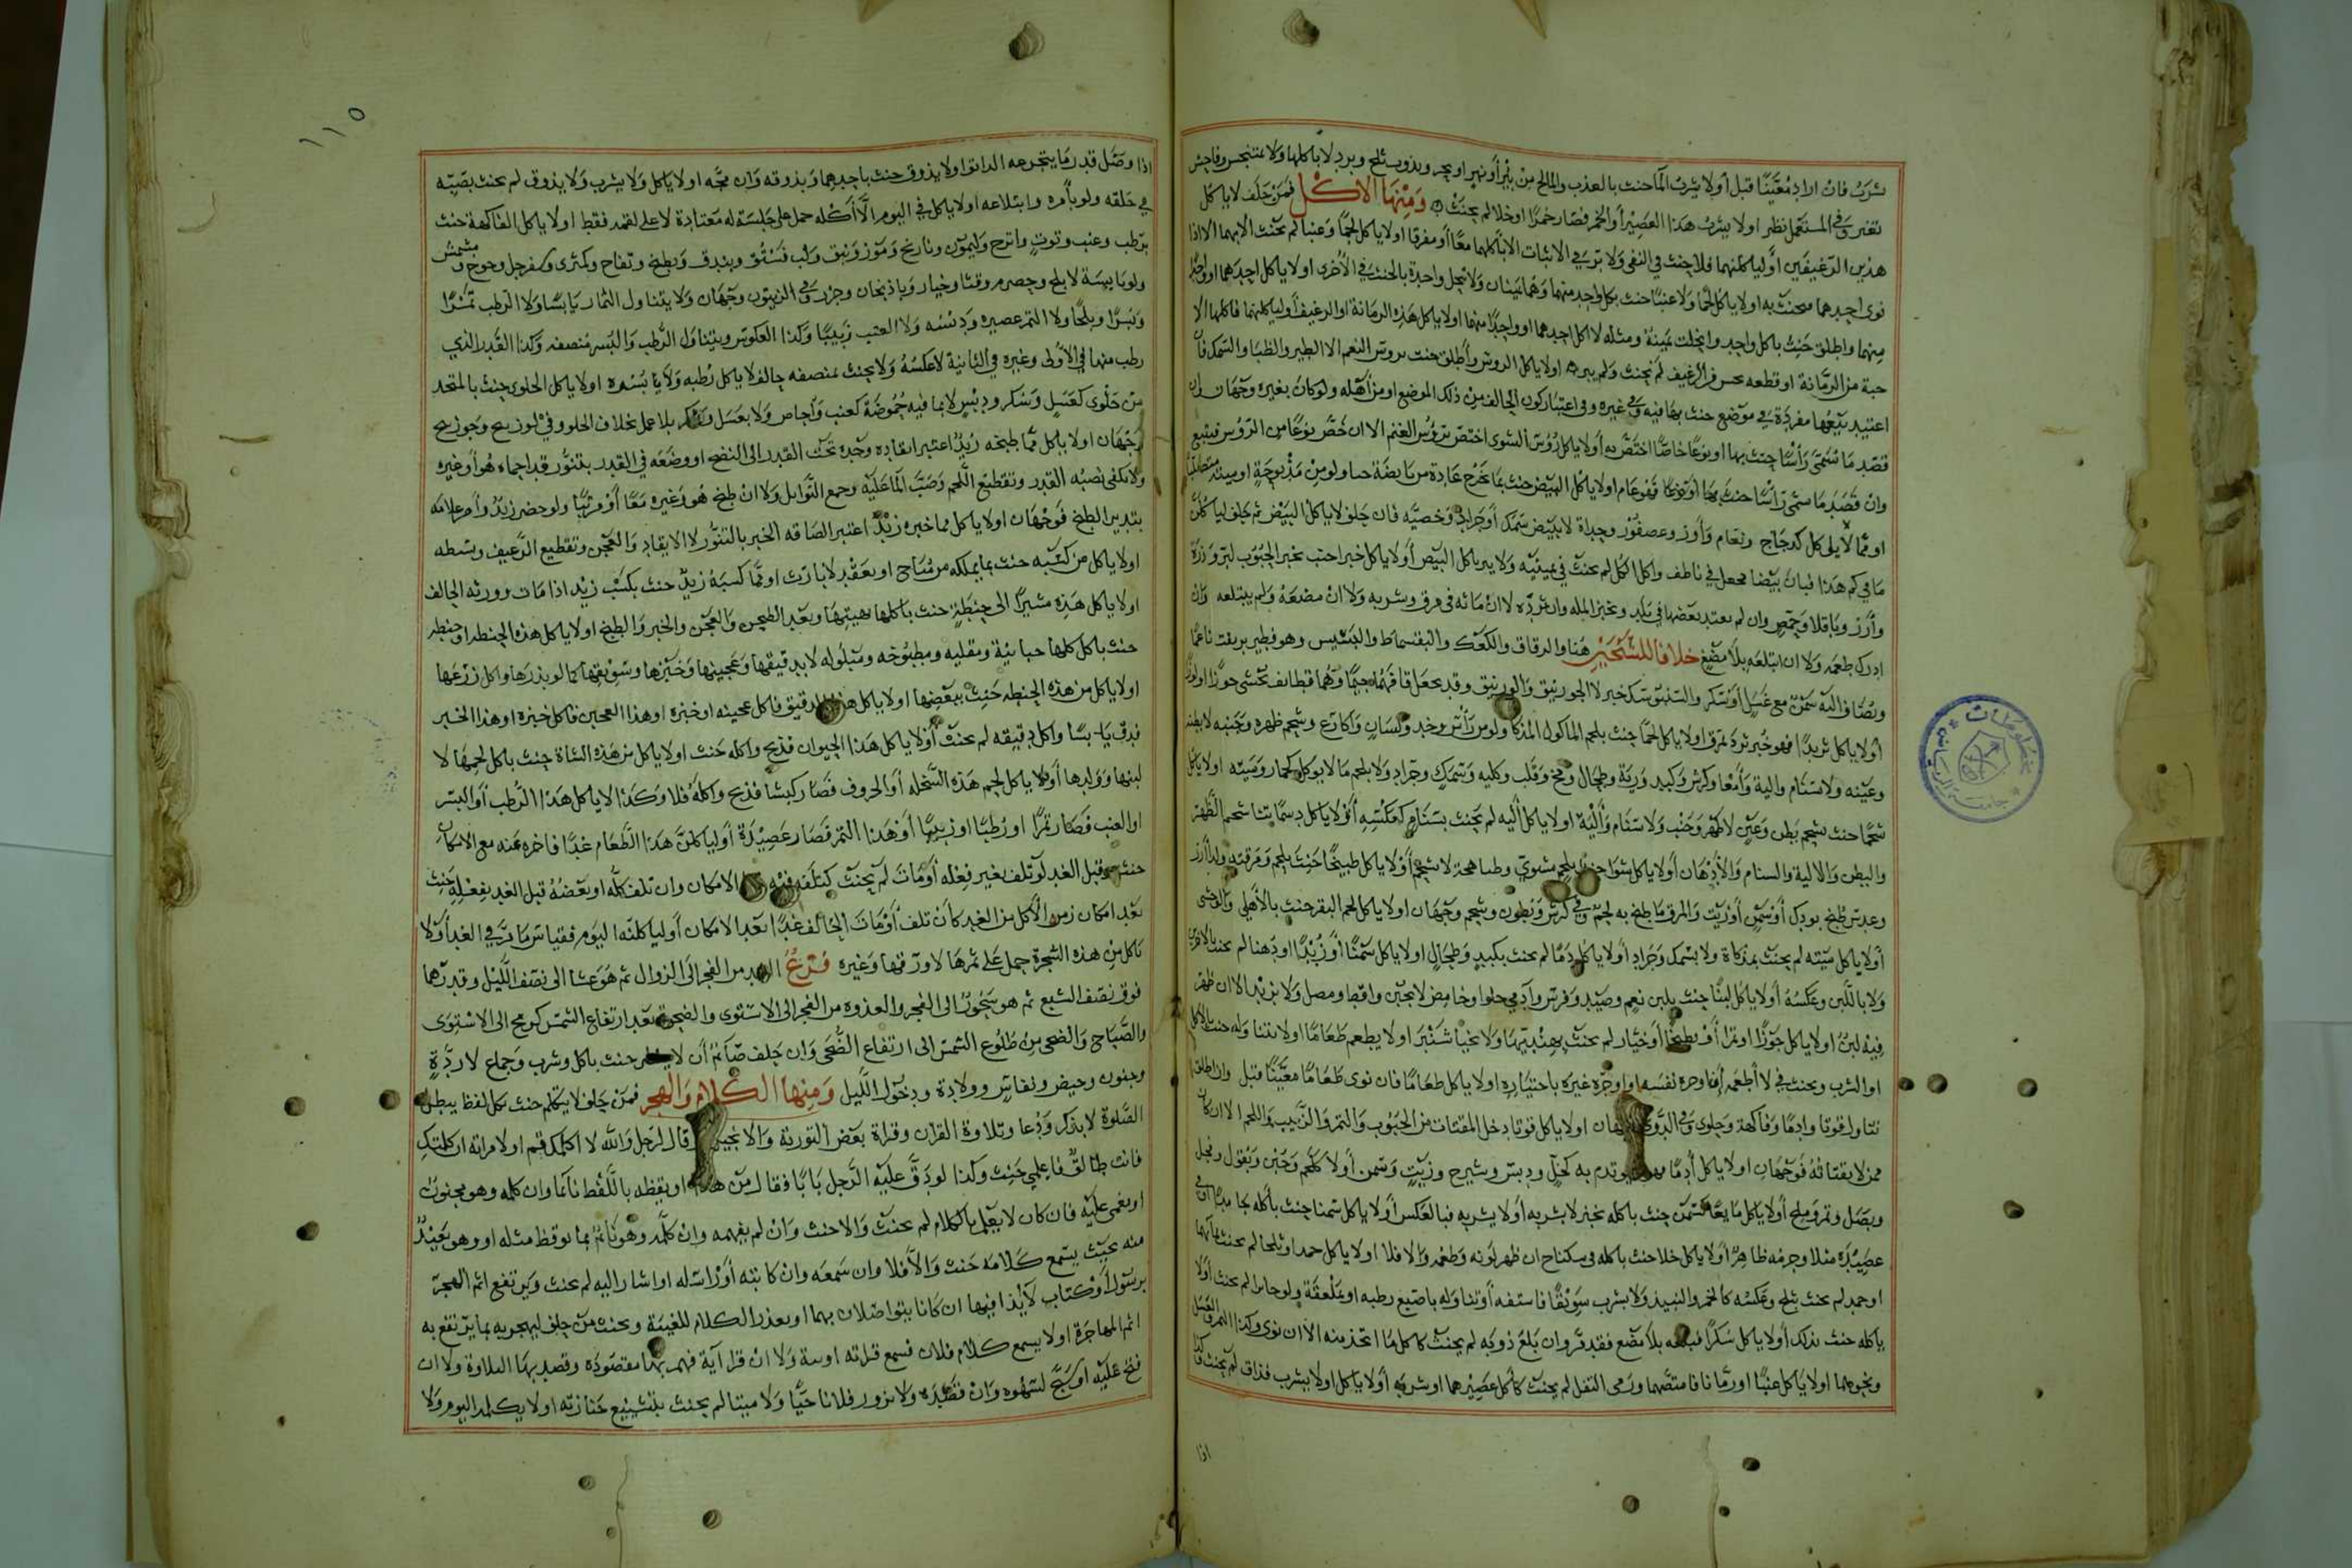 شرب فان اراد معينا قبل أولا يشرب الما حنث بالعذب والمالح من بئر أو نهر او بحر وبذوب ثلج وبرد لا باكلها ولا بمتنجس وفاحش
تغير وفي المستعمل نظر اولا يشرب هذا العصير أو الخمر فصار خمرا او خلا لم يحنث ومنها الاكل فمن حلف لا ياكل
هذين الرغيفين أو لياكلنهما فلا حنث في النفي ولا بر في الاثبات الا باكلهما معا أو مفرقا اولا ياكل لحما وعنبا لم يحنث الا بهما الا اذا
نوى احدهما اولا ياكل لحما ولا عنبا حنث بكل واحد منهما وهما يمينان ولا تنحل واحدة بالحنث في الأخرى اولا ياكل احدهما او واحدا
منهما واطلق حنث باكل واحد وانحلت يمينه ومثله لا اكل احدهما او واحدا منهما اولا ياكل هذه الرمانة او الرغيف أو لياكلنهما فاكلها الا
حبة من الرمانة او قطعه من الرغيف لم يحنث ولم يبر اولا ياكل الروس وأطلق حنث بروس النعم الا الطير والظبا والسمك فان
اعتيد بيعها مفردة في موضع حنث بها فيه وفي غيره وفي اعتبار كون الحالف من ذلك الموضع او من أهله ولو كان بغيره وجهان
قصد ما تسمى رأسا حنث بها او نوعا خاصا اختص به أولا ياكل رؤس الشوى اختص برؤس الغنم الا ان خص نوعا من الرؤس فيتبع
وان قصد ما سمي راسا حنث بها اولا ياكل البيض حنث بما يخرج عادة من بائضه حيا ولو من مذبوحة او ميتة متصلبا
او مما لا يوكل كدجاج ونعام وأوز وعصفور لا بيض سمك أو جراد وخصيه فان حلف لا ياكل البيض ثم حلف لياكلن
ما في كم هذا فبان بيضا فجعل في ناطف واكل الكل لم يحنث في يمينيه ولا يبر باكل البيض أولا ياكل خبزا حنث بخبز الحبوب كبر وذرة
وأرز وباقلا وحمص وان لم يعتد بعضها في بلد وبخبز المله وان ثرده لا ان ماثه في مرق وشربه ولا ان مضغه ولم يبتلعه وان
ادرك طعمه ولا ان ابتلعه بلا مضغ خلافا للشيخين هنا والرقاق والكعك والبقسماط والبسيس وهو فطير
أولا ياكل ثريدا فهو خبز ثرد بمرق اولا ياكل لحما حنث بلحم الماكول المذكا ولو من رأس وخد ولسان واكارع وشحم ظهره وجنبه لا بطنه
وعينه ولا سنام والية وأمعا وكرش وكبد ورية وطحال ومخ وقلب وكليه وسمك وجراد ولا بلحم ما لا يوكل كحمار وميتة اولا ياكل
شحما حنث بشحم بطن وعين لا ظهر وجنب ولا سنام وألية اولا ياكل أليه لم يحنث بسنام كعكسه أولا ياكل دسما تناول شحم الظهر
والبطن والالية والسنام والأدهان أولا ياكل شوا حنث بلحم مشوي وطباهجة لا شحم أولا ياكل طبيخا حنث بلحم ومرقه
أولا ياكل ميتة لم يحنث بمذكاة ولا بسمك وجراد أولا ياكل دما لم يحنث بكبد وطحال اولا ياكل سمنا أو زبدا او دهنا لم يحنث بالاخرين
ولا باللبن وعكسه أولا ياكل لبنا حنث بلبن نعم وصيد وفرس وآدمي حلوا وحامضا لا بجبن واقط ومصل ولا بزبد الا ان ظهر
فيه لبن اولا ياكل جوزا او تمرا أو بطيخا أو خيار لم يحنث بهنديتها ولا بخيار شنبر اولا يطعم طعاما اولا يتناوله حنث بالاكل
او الشرب ويحنث في لا أطعمه نفسه او اوجره غيره باختياره اولا ياكل طعاما فان نوى طعاما معينا قبل وان اطلق
تناول قوتا وادما وفاكهة وحلوى وفي الدوى وجهان اولا ياكل قوتا دخل المقتات من الحبوب والتمر والزبيب واللحم الا ان كان
ممن لا يقتاته فوجهان اولا ياكل أدما بما يوتدم به كخل ودبس وشيرج وزيت وسمن أولا كلحم وجبن وبقول وفجل
وبصل وتمر وملح أولا ياكل مايعا كسمن حنث باكله بخبز لا بشربه أولا يشربه فبالعكس أولا ياكل سمنا حنث بأكله جامدا او في
عصيدة مثلا وجرمه ظاهرا أولا ياكل خلا حنث باكله في سكباج ان ظهر لونه وطعمه والا فلا اولا ياكل جمدا وثلجا لم يحنث
او جمد لم يحنث بثلج وعكسه كالخمر والنبيذ ولا يشرب سويقا فاستفه أو تناوله باصبع رطبه او بملعقة ولو حاسرا لم يحنث أولا
ياكله حنث بذلك أولا ياكل سكرا فبلعه بلا مضغ فقد مر وان بلع ذوبه لم يحنث كاكل ما اتخذ منه الا ان نوى وكذا التمر والعسل
ونحوهما اولا ياكل عنبا او رمانا فامتصهما ورمى الثفل لم يحنث كأكل عصيرهما او شربه أولا ياكل اولا يشرب فذاق لم يحنث
اذا
١١٥
اذا وصل قدر ما يتجرعه الدائق اولا يذوق حنث باحدهما وبذوقه وان مجه اولا ياكل ولا يشرب ولا يذوق لم يحنث بصبه
في حلقه ولو بأمره وابتلاعه اولا ياكل في اليوم الا أكله حمل على جلسة له معتادة لا على لقمه فقط اولا ياكل الفاكهة حنث
برطب وعنب وتوت واترج وليمون ونارنج وموز ونبق ولب فستق وبندق وبطيخ وتفاح وكمثرى وسفرجل وخوخ ومشمش
ولو يابسة لا بلح وحصرم وقثا وخيار وباذنجان وجزر وفي الزيتون وجهان ولا يتناول الثمار يابسا ولا الرطب تمرا
وبسرا وبلحا ولا التمر عصيره ودبسه ولا العنب زبيبا وكذا العكوس ويتناول الرطب والبسر منصفه وكذا القدر الذي
رطب منهما في الأولى وغيره في الثانية لا عكسه ولا يحنث بمنصفه حالف لا ياكل رطبه ولا بسره اولا ياكل الحلوى حنث بالمتخذ
من حلوى كعسل وسكر ودبس لا بما فيه حموضة كعنب وأجاص ولا بعسل وسكر بلا عمل بخلاف الحلو وفي لوزينج وجوزينج
وجهان اولا ياكل مما طبخه زيد اعتبر ايقاده وحده تحت القدر الى النضج او وضعه في القدر بتنور قد احماه هو أو غيره
ولا يكفي نصبه القدر وتقطيع اللحم وصب الما عليه وجمع التوابل ولا ان طبخ هو وغيره معا أو مرتبا ولو حضر زيد وأمر غلامه
بتدبير الطبخ فوجهان اولا ياكل مما خبزه زيد اعتبر الصاقه الخبز بالتنور لا الايقاد والعجن وتقطيع الرغيف وبسطه
اولا ياكل من كسبه حنث بما يملكه من مباح او بعقد لا بارث او مما كسبه زيد حنث بكسب زيد اذا مات وورثه الحالف
اولا ياكل هذه مشيرا الى حنطة حنث باكلها بهيئتها وبعد الطحن والعجن والخبز والطبخ اولا ياكل هذه الحنطه او حنطه
حنث باكل كلها حبا نيه ومقليه ومطبوخه ومبلوله لا بدقيقها وعجينها وخبزها وسويقها كما لو بذرها واكل زرعها
اولا ياكل من هذه الحنطه حنث ببعضها اولا ياكل هذا الدقيق فاكل عجينه او خبزه او هذا العجين فاكل خبزه او هذا الخبز
فدق يابسا واكل دقيقه لم يحنث أولا ياكل هذا الحيوان فذبح واكله حنث اولا ياكل من هذه الشاة حنث باكل لحمها لا
لبنها وولدها أولا ياكل لحم هذه السخله أو الخروف فصار كبشا فذبح واكله فلا وكذا لا ياكل هذا الرطب أو البسر
او العنب فصار تمرا او رطبا او زبيبا أو هذا التمر فصار عصيدة أو لياكلن هذا الطعام غدا فاخره عنه مع الامكان
حنث وقبل الغد لو تلف بغير فعله أو مات لم يحنث كتلفه فيه الامكان وان تلف كله او بعضه قبل الغد بفعله حنث
بعد امكان زمن الأكل من الغد كأن تلف أو مات الحالف غدا بعد الامكان أو لياكلنه اليوم فقياس ما مر في الغد أولا
ياكل من هذه الشجرة حمل على ثمرها لا ورقها وغيره فرع الغد من الفجر الى الزوال ثم هو عشا الى نصف الليل وقدرهما
فوق نصف الشبع ثم هو سحور الى الفجر والغدوه من الفجر الى الاستوى والضحوة بعد ارتفاع الشمس كرمح الى الاستوى
والصباح والضحى من طلوع الشمس الى ارتفاع الضحى وان حلف صائم أن لا يفطر حنث باكل وشرب وجماع لا ردة
وجنون وحيض ونفاس وولادة ودخول الليل ومنها الكلام والهجر فمن حلف لا يتكلم حنث بكل لفظ يبطل
الصلوة لا بذكر ودعا وتلاوة القران وقراة بعض التورية والانجيل قال لرجل والله لا اكلمك قم اولا مراته ان كلمتك
فانت طالق فاعلمي حنث وكذا لو دق عليه الرجل بابا فقال من هذا او يقظه باللفظ نائما وان كلمه وهو مجنون
او مغمى عليه فان كان لا يعلم بالكلام لم يحنث والا حنث وان لم يفهمه وان كلمه وهو نائم بما يوقظ مثله او وهو بعيد
منه بحيث يسمع كلامه حنث والا فلا وان سمعه وان كاتبه أو راسله او اشار اليه لم يحنث ويرتفع اثم الهجر
برسول أو كتاب لا يذا فيها ان كانا يتواصلان بهما او بعذر الكلام للغيبة ويحنث من حلف ليهجر به بما يرتفع به
اثم المهاجرة اولا يسمع كلام فلان فسمع قراته ولا ان قرا آية فهم بها مقصوده وقصد بها التلاوة ولا ان
فتح عليه او سبح لسهوه وان قصده ولا يزور فلانا حيا ولا ميتا لم يحنث بتشييع جنازته اولا يكلمه اليوم ولا